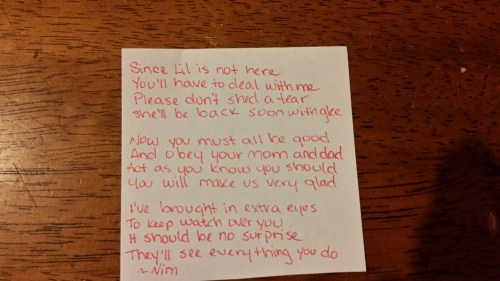 Since Lil is not here
You'll have to deal with me
Please don't shed a tear
She'll be back soon with glee
Now you must all be good
And obey your mom and dad
Act as you know you should
You will make us very glad
I've brought in extra eyes
To keep watch over you
It should be no surprise
They'll see everything you do
~ Nim